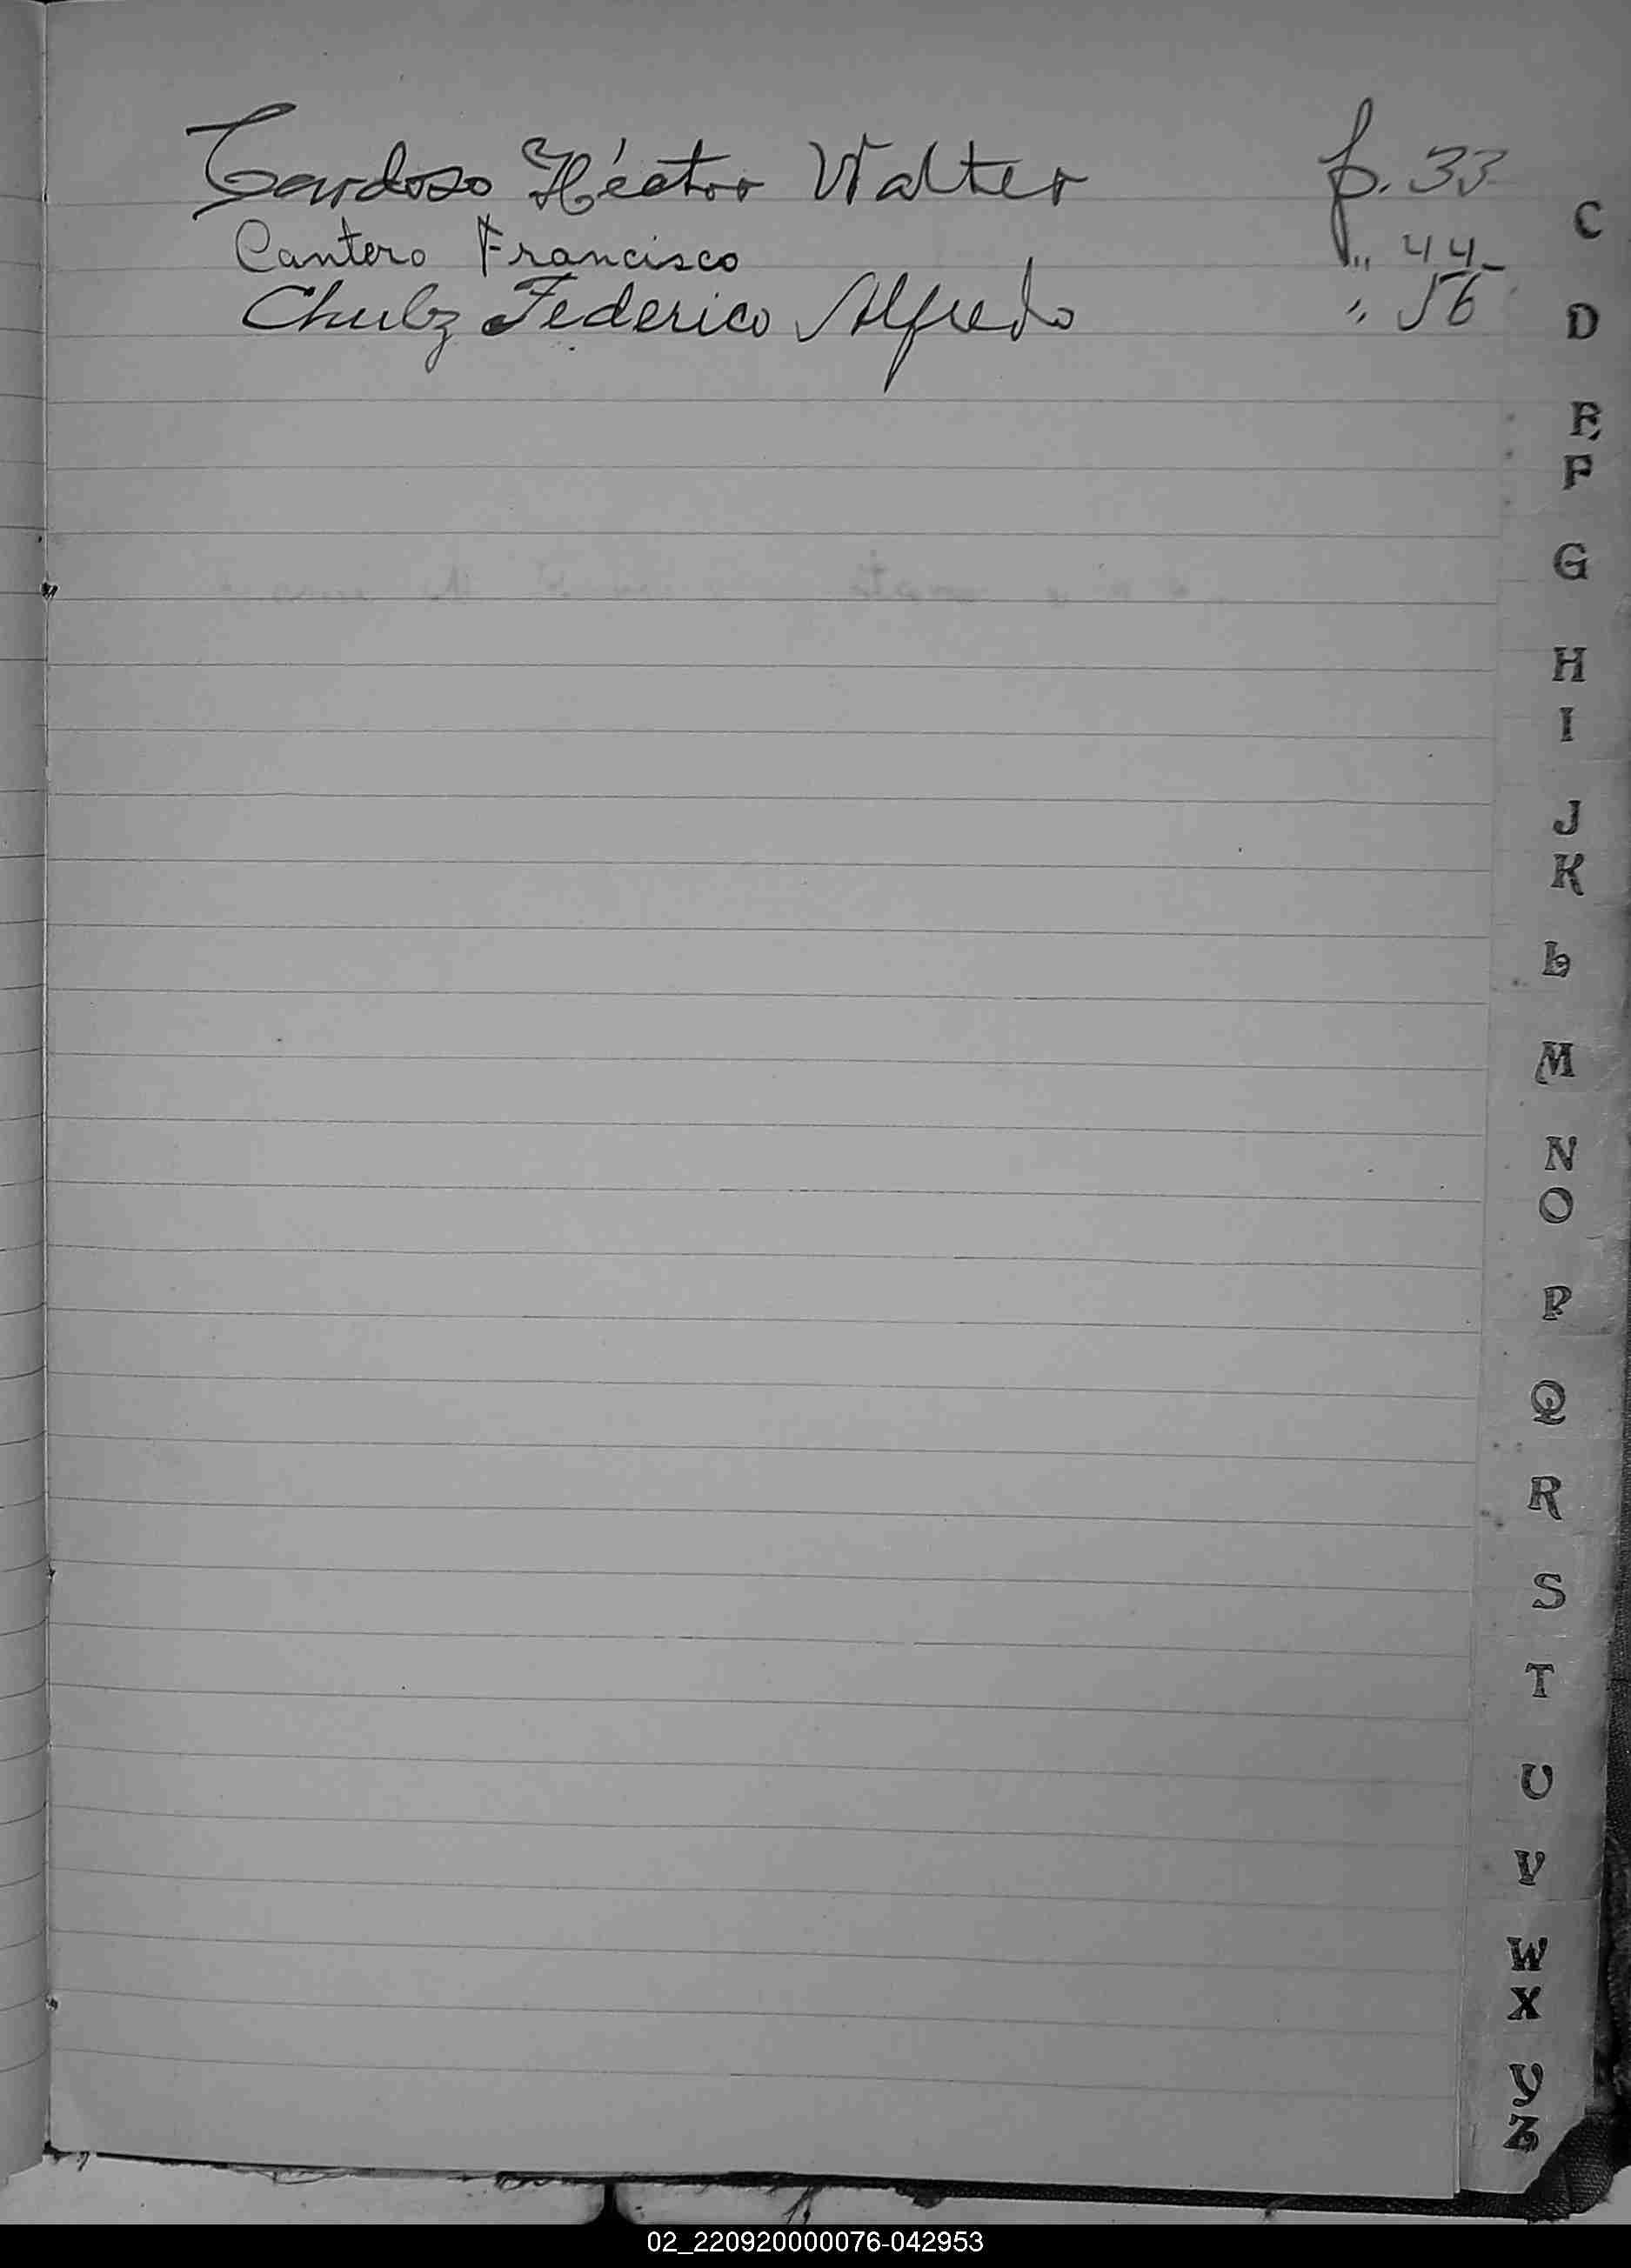 Cardoso Héctor Walter f. 33
Cantero Francisco „ 44
Chulz Federico Alfredo „ 56
C
D
E
F
G
H
I
J
K
L
M
N
O
P
Q
R
S
T
U
V
W
X
Y
Z
02_220920000076-042953